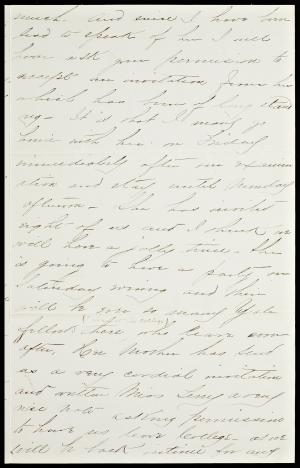 much. and since I have been
led to speak of her I will
here ask your permission to
accept an invitation from her
which has been of long stand
ing. It is that I may go
home with her on Friday
immediately after our examin
ation and stay until Monday
afternoon. She has invited
eight of us and I think we
will have a jolly time. She
is going to have a party on
Saturday evening and there
will be so many Yale
fellows there who
after, Her Mother has sent
us a very cordial invitation
and written Miss a very
nice note asking permission
to have us leave College as we
will be back in time for our